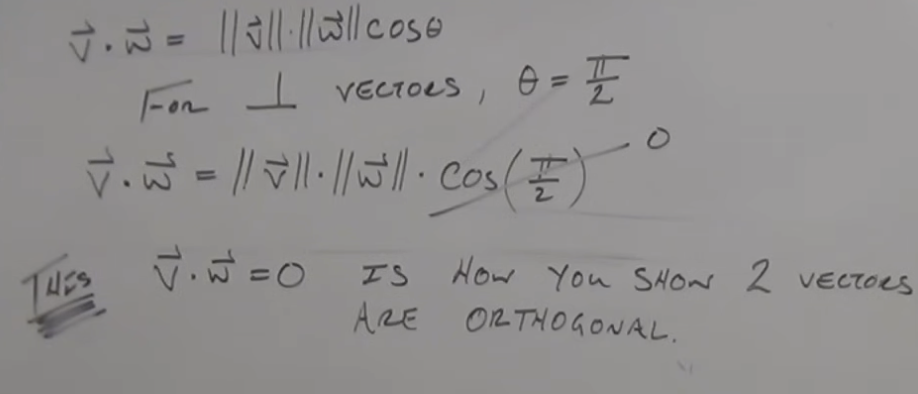 v⃗ · w⃗ = ||v⃗||·||w⃗|| cosθ
For ⊥ VECTORS, θ = π/2
v⃗ · w⃗ = ||v⃗||·||w⃗|| · cos(π/2) 0
THUS v⃗ · w⃗ = 0 IS HOW YOU SHOW 2 VECTORS
ARE ORTHOGONAL.